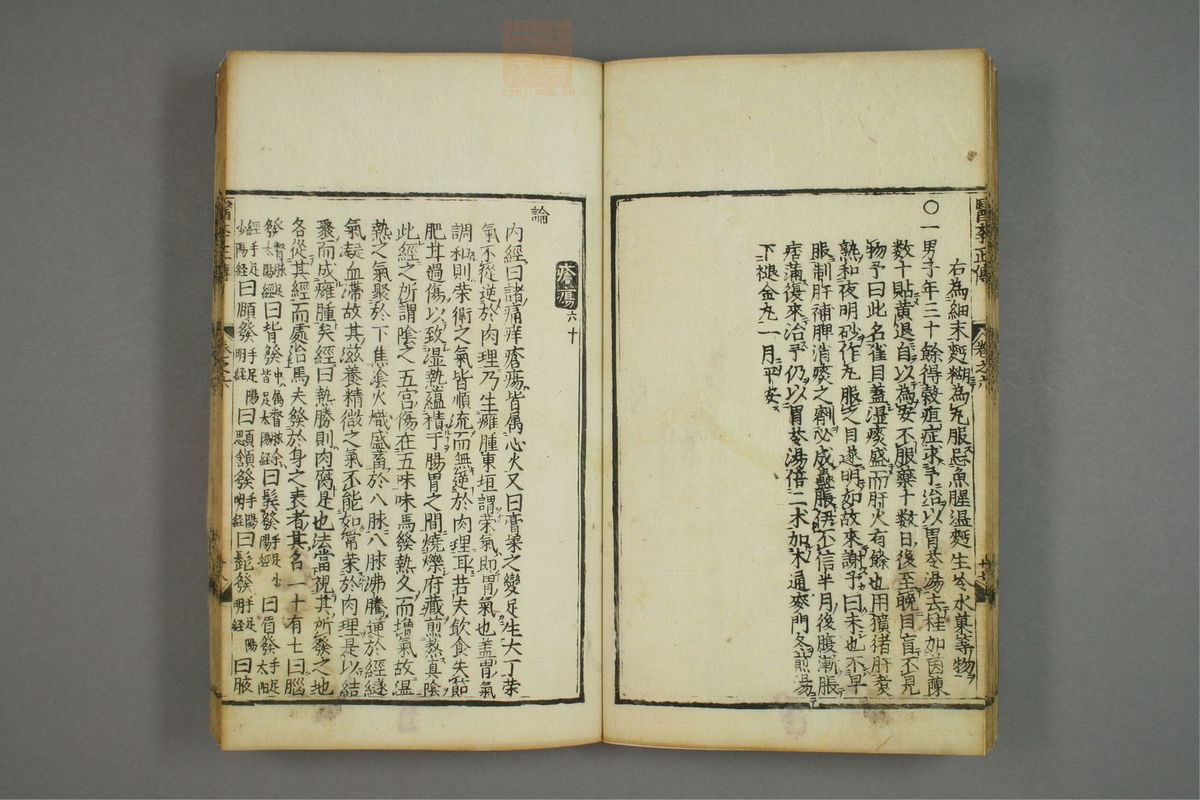 右為細末麪糊為丸服忌魚腥温麪生冷水菓等物
〇一男子年三十餘得穀疸症求予治以胃苓湯去桂加茵蔯
数十貼黃退自以為安不服藥十数日後至晚目盲不見
物予曰此名雀目蓋湿痰盛而肝火有餘也用獖猪肝煑
熟和夜明砂作丸服之目遂明如故來謝予曰未也不早
服制肝補脾消痰之劑必成蠱脹伊不信半月後腹漸脹
痞滿復來治予仍以胃苓湯倍二术加木通麥門冬煎湯
下褪金丸一月平安
瘡瘍 六十
論
内經曰諸痛痒瘡瘍皆属心火又曰膏粱之變足生大丁荣
氣不從逆於肉理乃生癰腫東垣謂荣氣即胃氣也盖胃氣
調和則荣衛之氣皆順流而無逆於肉理耳若夫飲食失節
肥甘過傷以致湿熱蘊積于腸胃之間燒爍府藏煎熬真陰
此經之所謂陰之五宮傷在五味味焉發熱久而增氣故温
熱之氣聚於下焦陰火熾盛蓄於八脉八脉沸騰逆於經縫
氣凝血滯故其滋養精微之氣不能如常荣於肉理是以結
聚而成癰腫矣經曰熱勝則肉腐是也法當視其所發之地
各從其經而處治焉夫發於身之表者其名一十有七曰腦
發督脉足太陽經曰背發中属督脉餘皆足太陽經曰鬂發手足少陽經曰眉發手足太陽
少陽經曰頤發手足陽明經曰顋頷發手足陽明經曰髭發手足陽明經曰腋